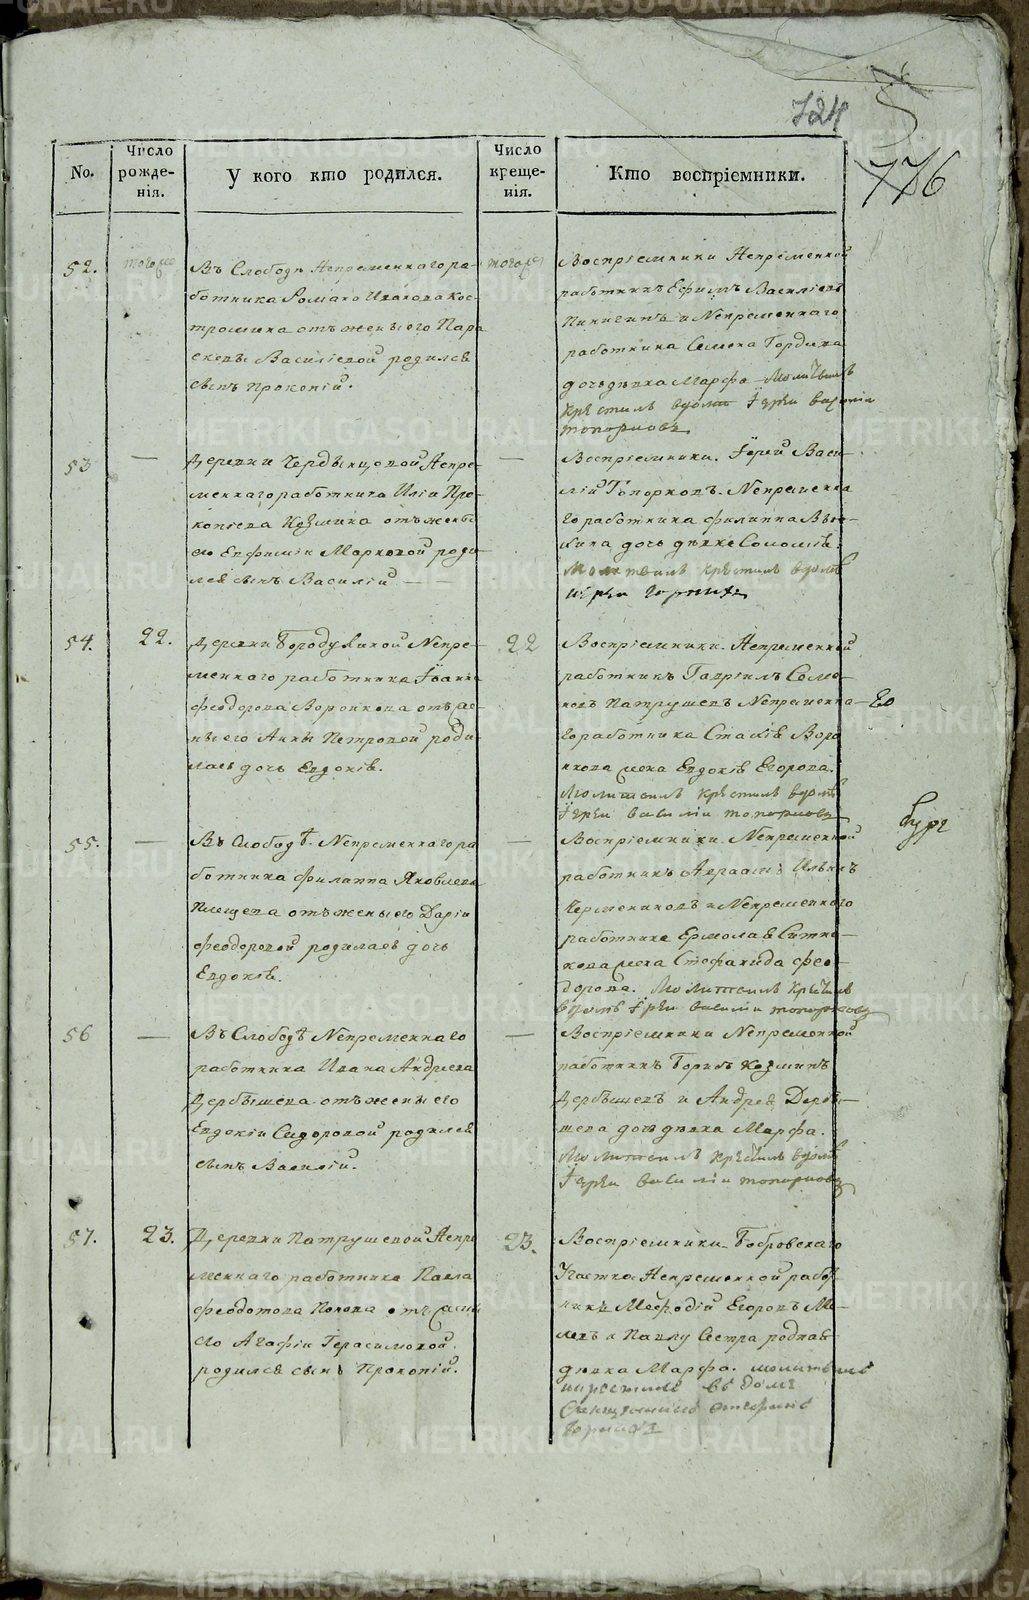 724
776
No.
Число рожденія.
У кого кто родился.
Число крещенія.
Кто воспріемники.
52.
тогоже
Въ Слободѣ Непременнаго ра-
ботника Романа Иванова Кос-
тромина отъ жены его Пара
скевы Василіевой родился
сынъ Прокопій.
тогоже
Воспріемники Непременной
работникъ Ефимъ Василіевъ
Пинигинъ и Непременнаго
работника Семена Гордина
дочь дѣвка Марфа Молитвилъ
крестилъ вдомѣ Іереи василіи
топорковъ
53
—
Деревни Чердынцовой Непре-
меннаго работника Иліи Про-
копіева Козмина отъ жены
его Евфиміи Марковой роди-
лся сынъ Василій —
—
Воспріемники. Іерей Васи-
лій Топорковъ. Непременна
го работника филиппа
дочь дѣвка Соломія
Молитвилъ крестилъ вдомѣ
іереи
54.
22.
Деревни Бородулиной Непре-
меннаго работника Іоанна
феодорова Воронкова отъ же-
ны его Анны Петровой роди-
лась дочь Евдокія.
22
Воспріемники. Непременной
работникъ Гавріилъ Семе-
новъ Патрушевъ Непременна-
го работника Воро
нкова жена Евдокія Егорова.
Молитвилъ крестилъ вдомѣ
Іереи василіи топорковъ
55.
—
Въ Слободѣ Непременнаго ра
ботника филиппа Яковлева
Плещева отъ жены его Даріи
феодоровой родилась дочь
Евдокія.
—
Воспріемники Непременной
работникъ Авраамъ Ильинъ
и Непременнаго
работника Ермолая Ситни-
кова жена Стефанида фео-
дорова. Молитвилъ крестилъ
вдомѣ Іереи василіи топорковъ
56
—
Въ Слободѣ Непременнаго
работника Ивана Андреева
Дербышева отъ жены его
Евдокіи Сидоровой родился
сынъ Василій.
—
Воспріемники Непременной
работникъ Борисъ Козминъ
Дербышевъ и Андрея Дербы-
шева дочь дѣвка Марфа.
Молитвилъ крестилъ вдомѣ
Іереи василіи топорковъ
57.
23.
Деревни Патрушевой Непре
меннаго работника Павла
феодотова Попова отъ жены
его Агафіи Герасимовой
родился сынъ Прокопій.
23.
Воспріемники Бобровскаго
Участка Непременной работ
никъ Мефодій Егоровъ
и Павлу Сестра родная
дѣвка Марфа. молитвилъ
икрестилъ въ доме
Священникъ
METRIKI.GASO-URAL.RU